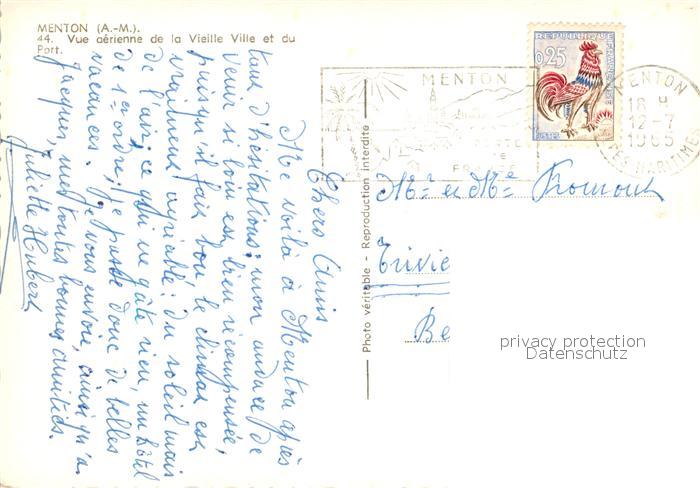 MENTON (A.-M.).
44. Vue aérienne de la Vieille Ville et du
Port.
Chers Amis
Me voilà à Menton après
tant d'hésitations: mon audace de
venir si loin est bien récompensée,
puisqu'il fait bon le climat est
vraiment agréable: du soleil mais
de l'air, ce qui ne gâte rien, un hôtel
de 1er ordre; je passe donc de belles
vacances. Je vous envoie, ainsi qu'à
Jacques, mes toutes bonnes amitiés.
Juliette Hubert
Photo véritable - Reproduction interdite
MENTON
FRANCE
REPUBLIQUE FRANÇAISE
0,25
POSTES
MENTON
18 H
12-7
1965
ALPES-MARITIMES
Mr et Me Fromont
Trivie
Be
privacy protection
Datenschutz